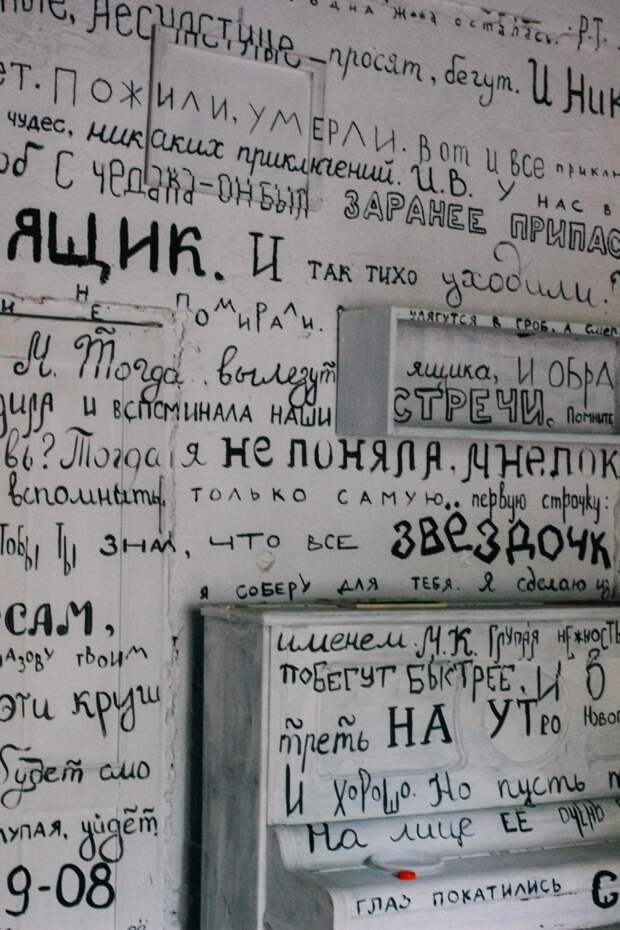 одна жена осталась. Р.Т.
ные, несчастные – просят, бегут. И Ник
ет. Пожили, умерли. Вот и все приклю
чудес, никаких приключений. И.В. У нас в
об с чердака – он был заранее припас
ящик. И так тихо уходили.
и не помирали.
улягутся в гроб, а
М. Тогда вылезут ящика, и обра
дила и вспоминала наши стречи. Помните
вь? Тогда я не поняла. Мне пок
вспомнить только самую.. первую строчку:
тобы ты знал, что все звёздочк
я соберу для тебя. Я сделаю из
сам, именем М.К. Глупая нежность
азову твоим побегут быстрее. И в
эти круш треть на утро Новог
будет само И хорошо. Но пусть
лупая, уйдёт На лице её очень
9-08 глаз покатились с